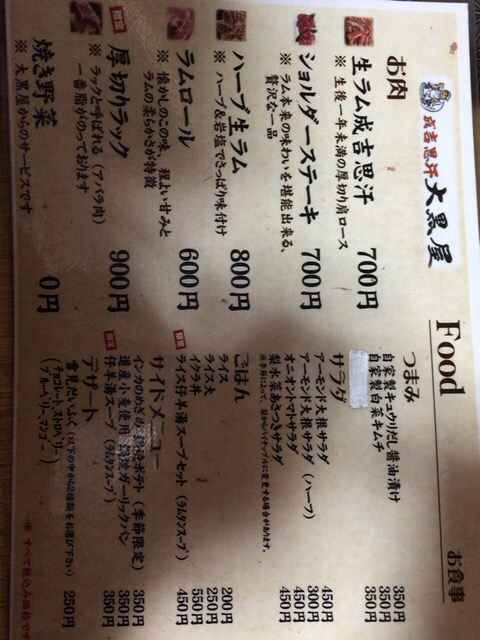 成吉思汗 大黒屋
Food
お食事
お肉
生ラム成吉思汗 700円
※ 生後一年未満の厚切り肩ロース
ショルダーステーキ 700円
※ ラム本来の味わいを堪能出来る、
贅沢な一品
ハーブ生ラム 800円
※ ハーブ&岩塩でさっぱり味付け
ラムロール 600円
※ 懐かしのこの味、程よい甘みと
ラムの柔らかさが特徴
限定
厚切りラック 900円
※ ラックと呼ばれる(アバラ肉)
一番脂がのっております
焼き野菜 0円
※ 大黒屋からのサービスです
つまみ
自家製キュウリだし醤油漬け 350円
自家製白菜キムチ 350円
350円
サラダ
アーモンド大根サラダ 450円
アーモンド大根サラダ(ハーフ) 300円
オニオントマトサラダ 450円
梨水菜あさつきサラダ 450円
※季節によって、梨からパイナップルに変更する場合があります。
ごはん
ライス 200円
ライス大 250円
ラクラ丼 550円
限定
ライス仔羊湯スープセット(ラムタンスープ) 450円
サイドメニュー
インカのめざめ 鍋焼ポテト(季節限定) 350円
道産小麦使用 鍋焼ガーリックパン 350円
限定
仔羊湯スープ(ラムタンスープ) 350円
デザート
雪見だいふく(以下の中から2種類をお選び下さい) 250円
(チョコレート、ストロベリー、
ブルーベリー、マンゴー)
※ すべて税込み価格です